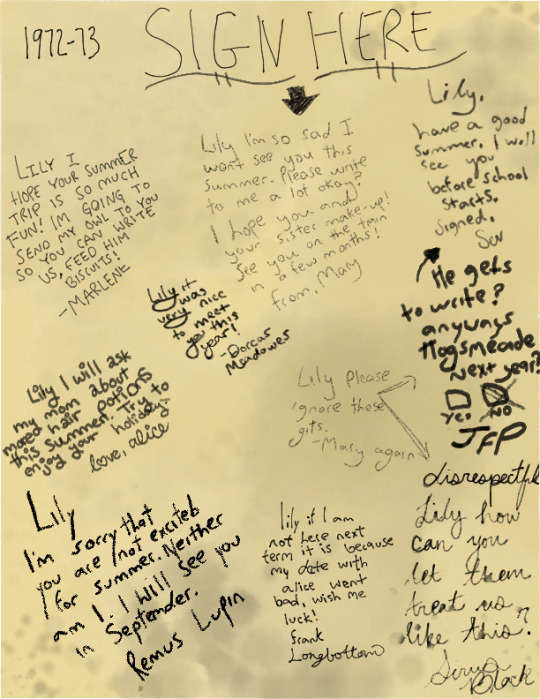 1972-73
SIGN HERE
Lily I'm so sad I
won't see you this
summer. Please write
to me a lot okay?
I hope you and
your sister make-up!
See you on the train
in a few months!
from, Mary
Lily,
have a good
summer. I will
see you
before school
starts.
signed,
Sev
LILY I
HOPE YOUR SUMMER
TRIP IS SO MUCH
FUN! IM GOING TO
SEND MY OWL TO YOU
SO YOU CAN WRITE
US, FEED HIM
BISCUITS!
-MARLENE
Lily it
was
very nice
to meet
you this
year!
-Dorcas
Meadowes
He gets
to write?
anyways
Hogsmeade
next year?
yes NO
JFP
Lily I will ask
my mom about
more hair potions
this summer. Try to
enjoy your holiday.
love, alice
Lily please
ignore these
gits.
-Mary again
disrespectful
Lily how
can you
let them
treat us
like this?
Sirius
Black
Lily
I'm sorry that
you are not excited
for summer. Neither
am I. I will see you
in September.
Remus Lupin
lily if I am
not here next
term it is because
my date with
alice went
bad, wish me
luck!
frank
Longbottom